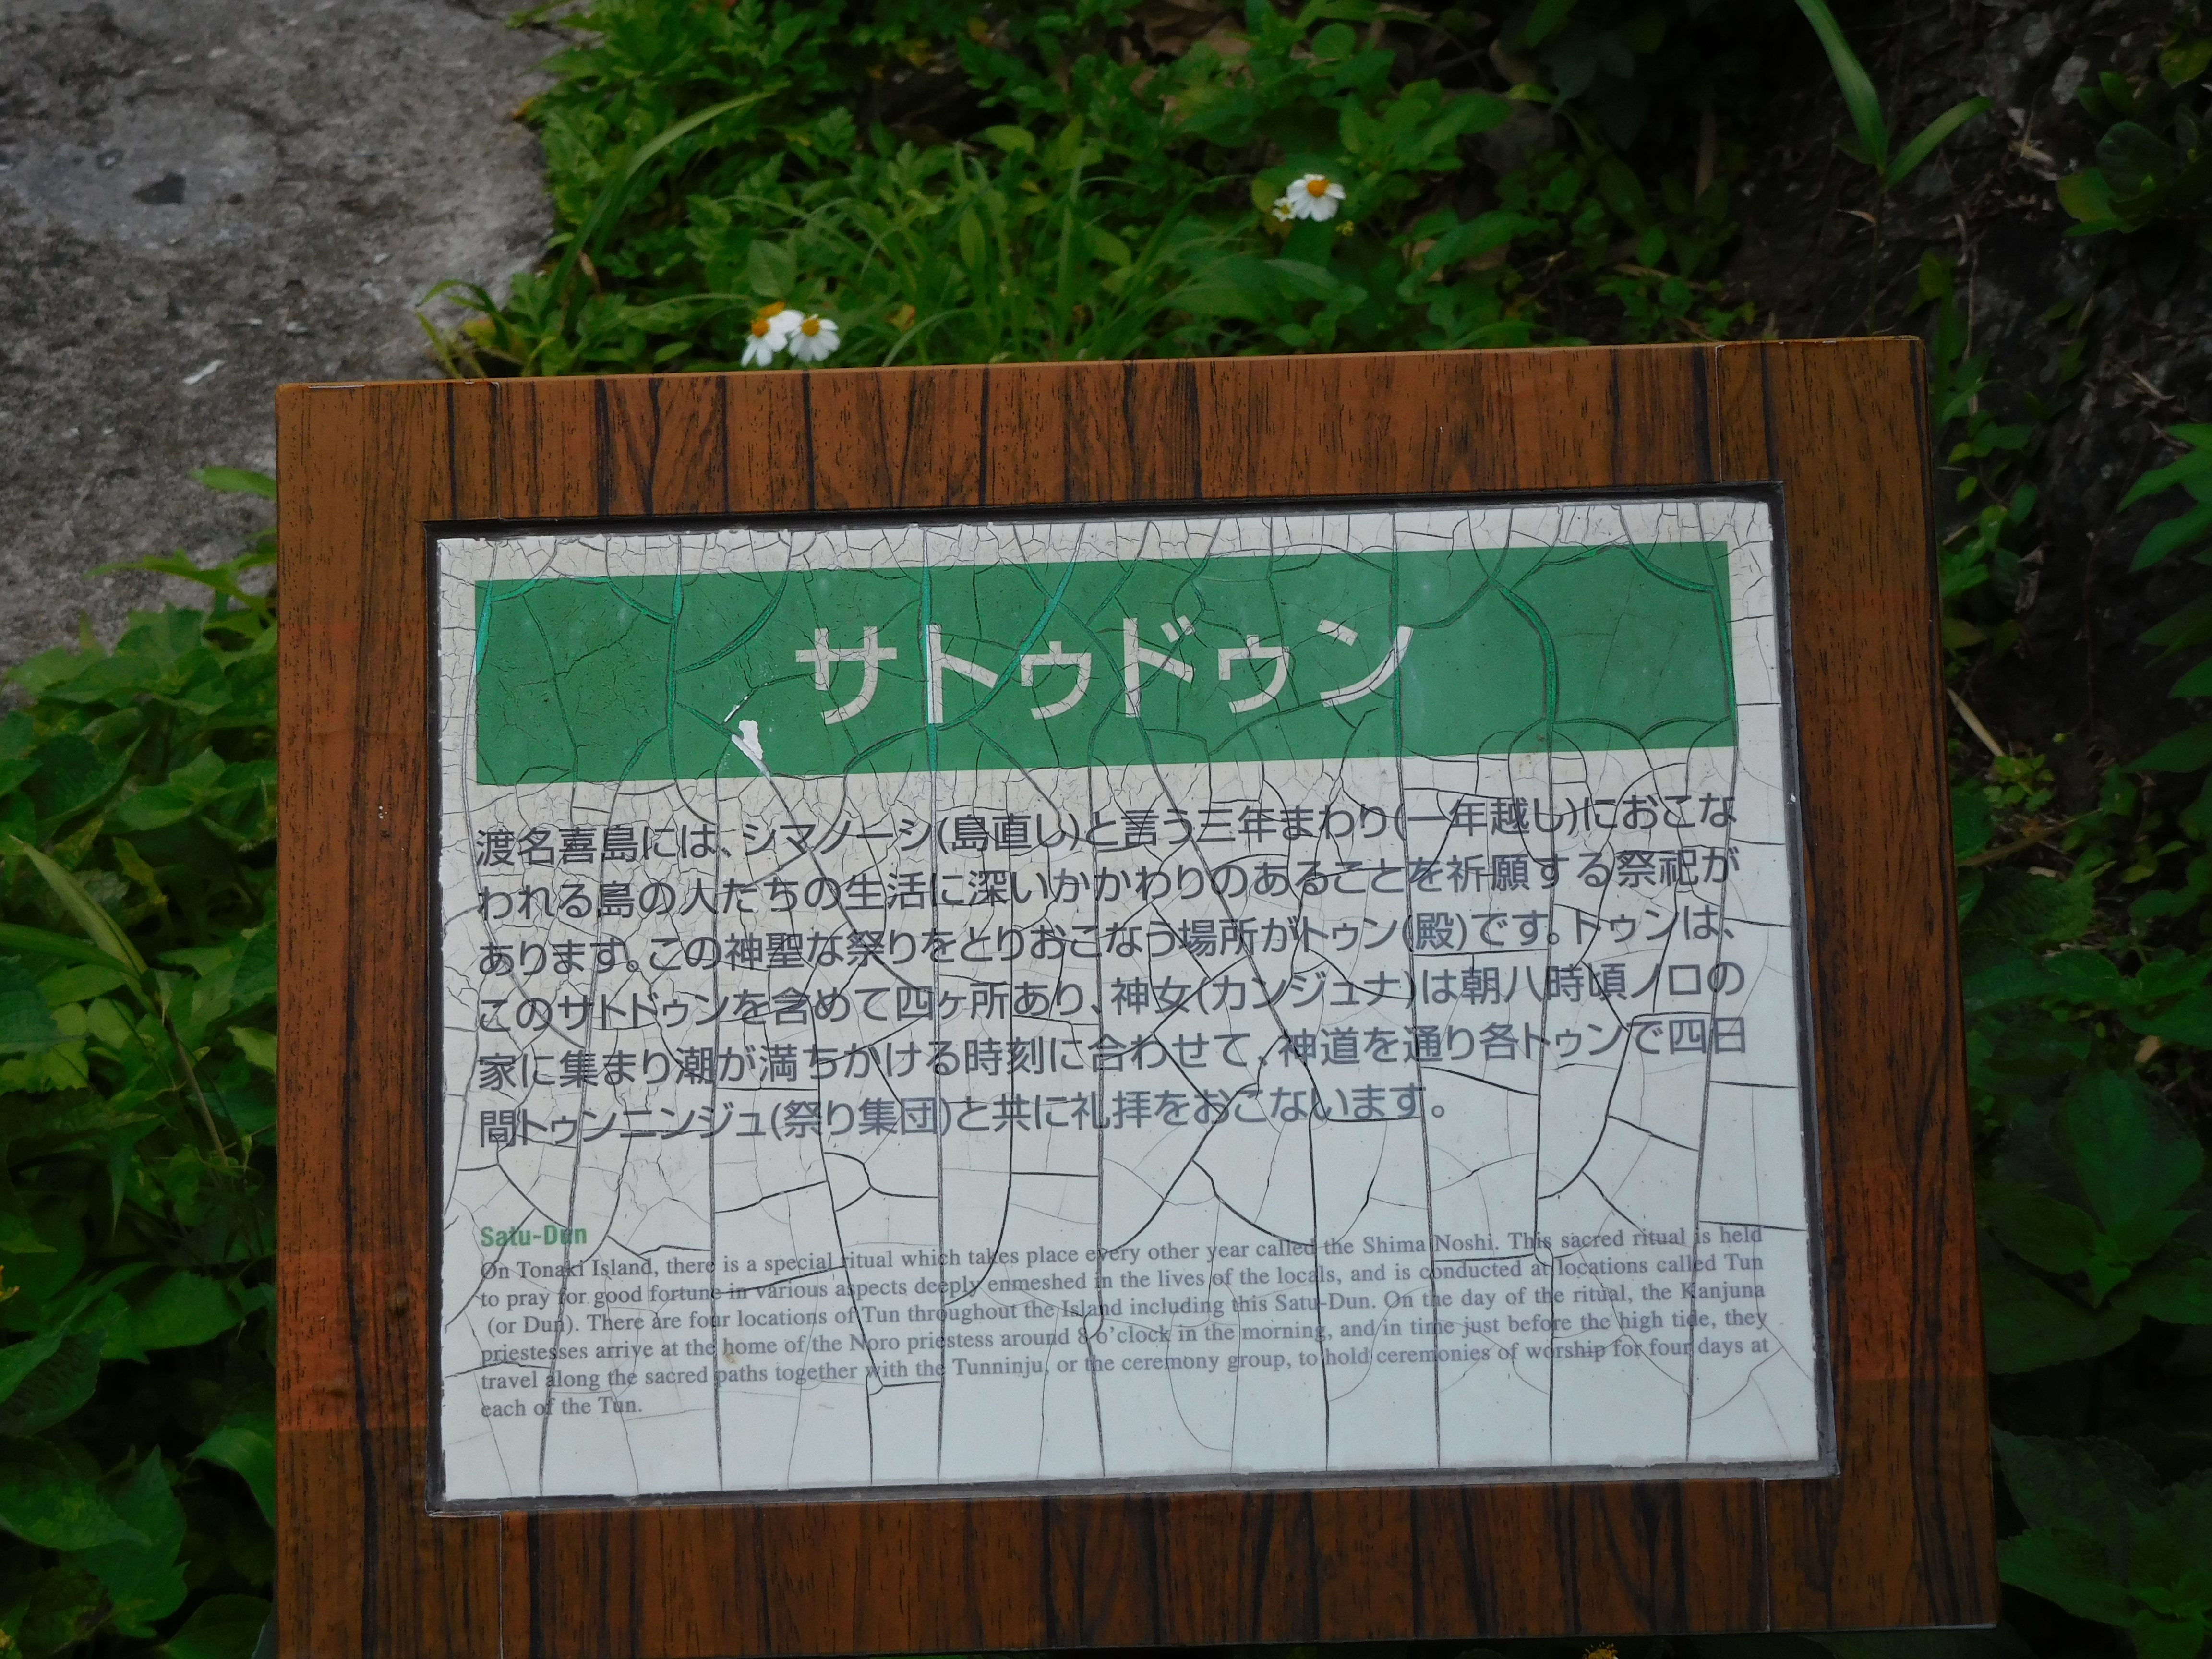 サトゥドゥン
渡名喜島には、シマノーシ(島直し)と言う三年まわり(一年越し)におこな
われる島の人たちの生活に深いかかわりのあることを祈願する祭祀が
あります。この神聖な祭りをとりおこなう場所がトゥン(殿)です。トゥンは、
このサトドゥンを含めて四ヶ所あり、神女(カンジュナ)は朝八時頃ノロの
家に集まり潮が満ちかける時刻に合わせて、神道を通り各トゥンで四日
間トゥンニンジュ(祭り集団)と共に礼拝をおこないます。
Satu-Dun
On Tonaki Island, there is a special ritual which takes place every other year called the Shima Noshi. This sacred ritual is held
to pray for good fortune in various aspects deeply enmeshed in the lives of the locals, and is conducted at locations called Tun
(or Dun). There are four locations of Tun throughout the Island including this Satu-Dun. On the day of the ritual, the Kanjuna
priestesses arrive at the home of the Noro priestess around 8 o'clock in the morning, and in time just before the high tide, they
travel along the sacred paths together with the Tunninju, or the ceremony group, to hold ceremonies of worship for four days at
each of the Tun.